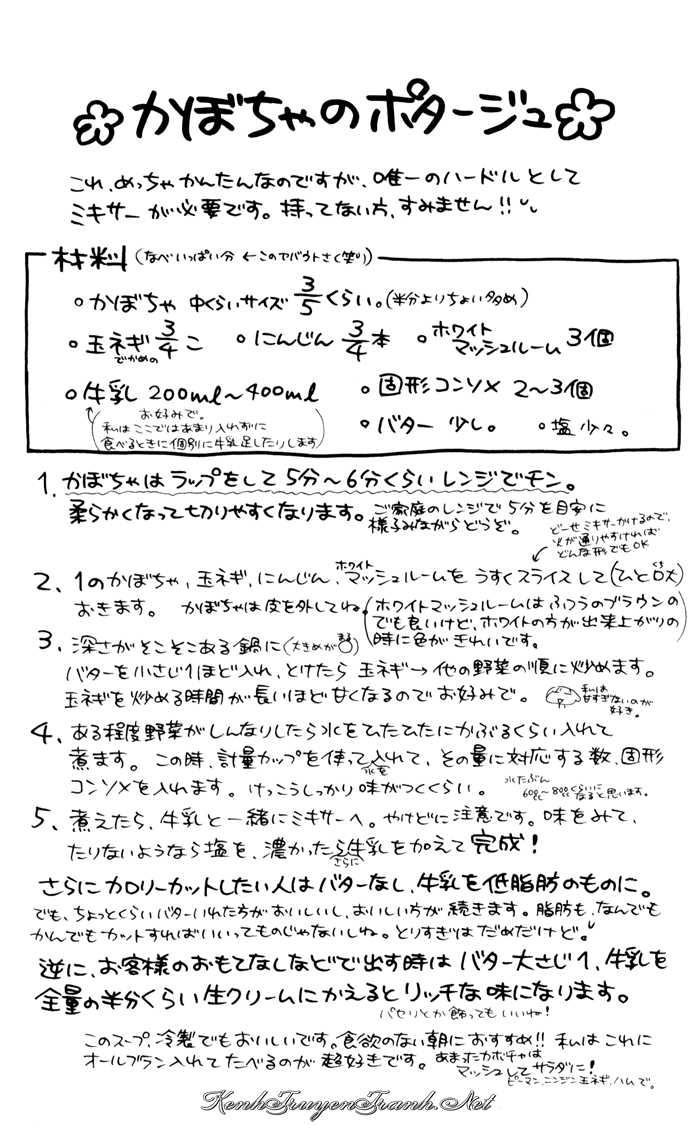 かぼちゃのポタージュ
これ、めっちゃかんたんなのですが、唯一のハードルとして
ミキサーが必要です。持ってない方、すみません!!
材料(なべいっぱい分 ←このアバウトさ(笑))
○かぼちゃ 中くらいサイズ 3/5くらい。(半分よりちょい多め)
○玉ネギ 3/4こ ○にんじん 3/4本 ○ホワイトマッシュルーム 3個
でかめの
○牛乳 200ml~400ml ○固形コンソメ 2~3個
お好みで。
私はここではあまり入れずに
食べるときに個別に牛乳足したりします
○バター 少し。 ○塩 少々。
1. かぼちゃはラップをして5分~6分くらいレンジでチン。
柔らかくなって切りやすくなります。ご家庭のレンジで5分を目安に
様子みながらどうぞ。
どーせミキサーかけるので、
火が通りやすければ
どんな形でもOK
2. 1のかぼちゃ、玉ネギ、にんじん、ホワイトマッシュルームをうすくスライスして(ひと口大)
おきます。 かぼちゃは皮を外してね。
(ホワイトマッシュルームはふつうのブラウンの
でも良いけど、ホワイトの方が出来上がりの
時に色がきれいです。)
3. 深さがそこそこある鍋に(大きめが)
バターを小さじ1ほど入れ、とけたら 玉ネギ→他の野菜の順に炒めます。
玉ネギを炒める時間が長いほど甘くなるのでお好みで。
私は
甘すぎないのが
好き。
4. ある程度野菜がしんなりしたら水をひたひたにかぶるくらい入れて
煮ます。 この時、計量カップを使って水を入れて、その量に対応する数、固形
コンソメを入れます。 けっこうしっかり味がつくくらい。
水たぶん
600cc~800ccくらいに
なると思います。
5. 煮えたら、牛乳と一緒にミキサーへ。やけどに注意です。味をみて、
たりないようなら塩を、濃かったらさらに牛乳を加えて完成!
さらにカロリーカットしたい人はバターなし、牛乳を低脂肪のものに。
でも、ちょっとくらいバターいれた方がおいしいし、おいしい方が続きます。脂肪も、なんでも
かんでもカットすればいいってものじゃないしね。とりすぎはだめだけど。
逆に、お客様のおもてなしなどで出す時はバター大さじ1、牛乳を
全量の半分くらい生クリームにかえるとリッチな味になります。
パセリとか飾ってもいいね!
このスープ、冷製でもおいしいです。食欲のない朝におすすめ!! 私はこれに
オールブラン入れてたべるのが超好きです。
あまったカボチャは
マッシュしてサラダに!
ピーマン、ニンジン、玉ネギ、ハムで。
KenhTruyenTranh.Net